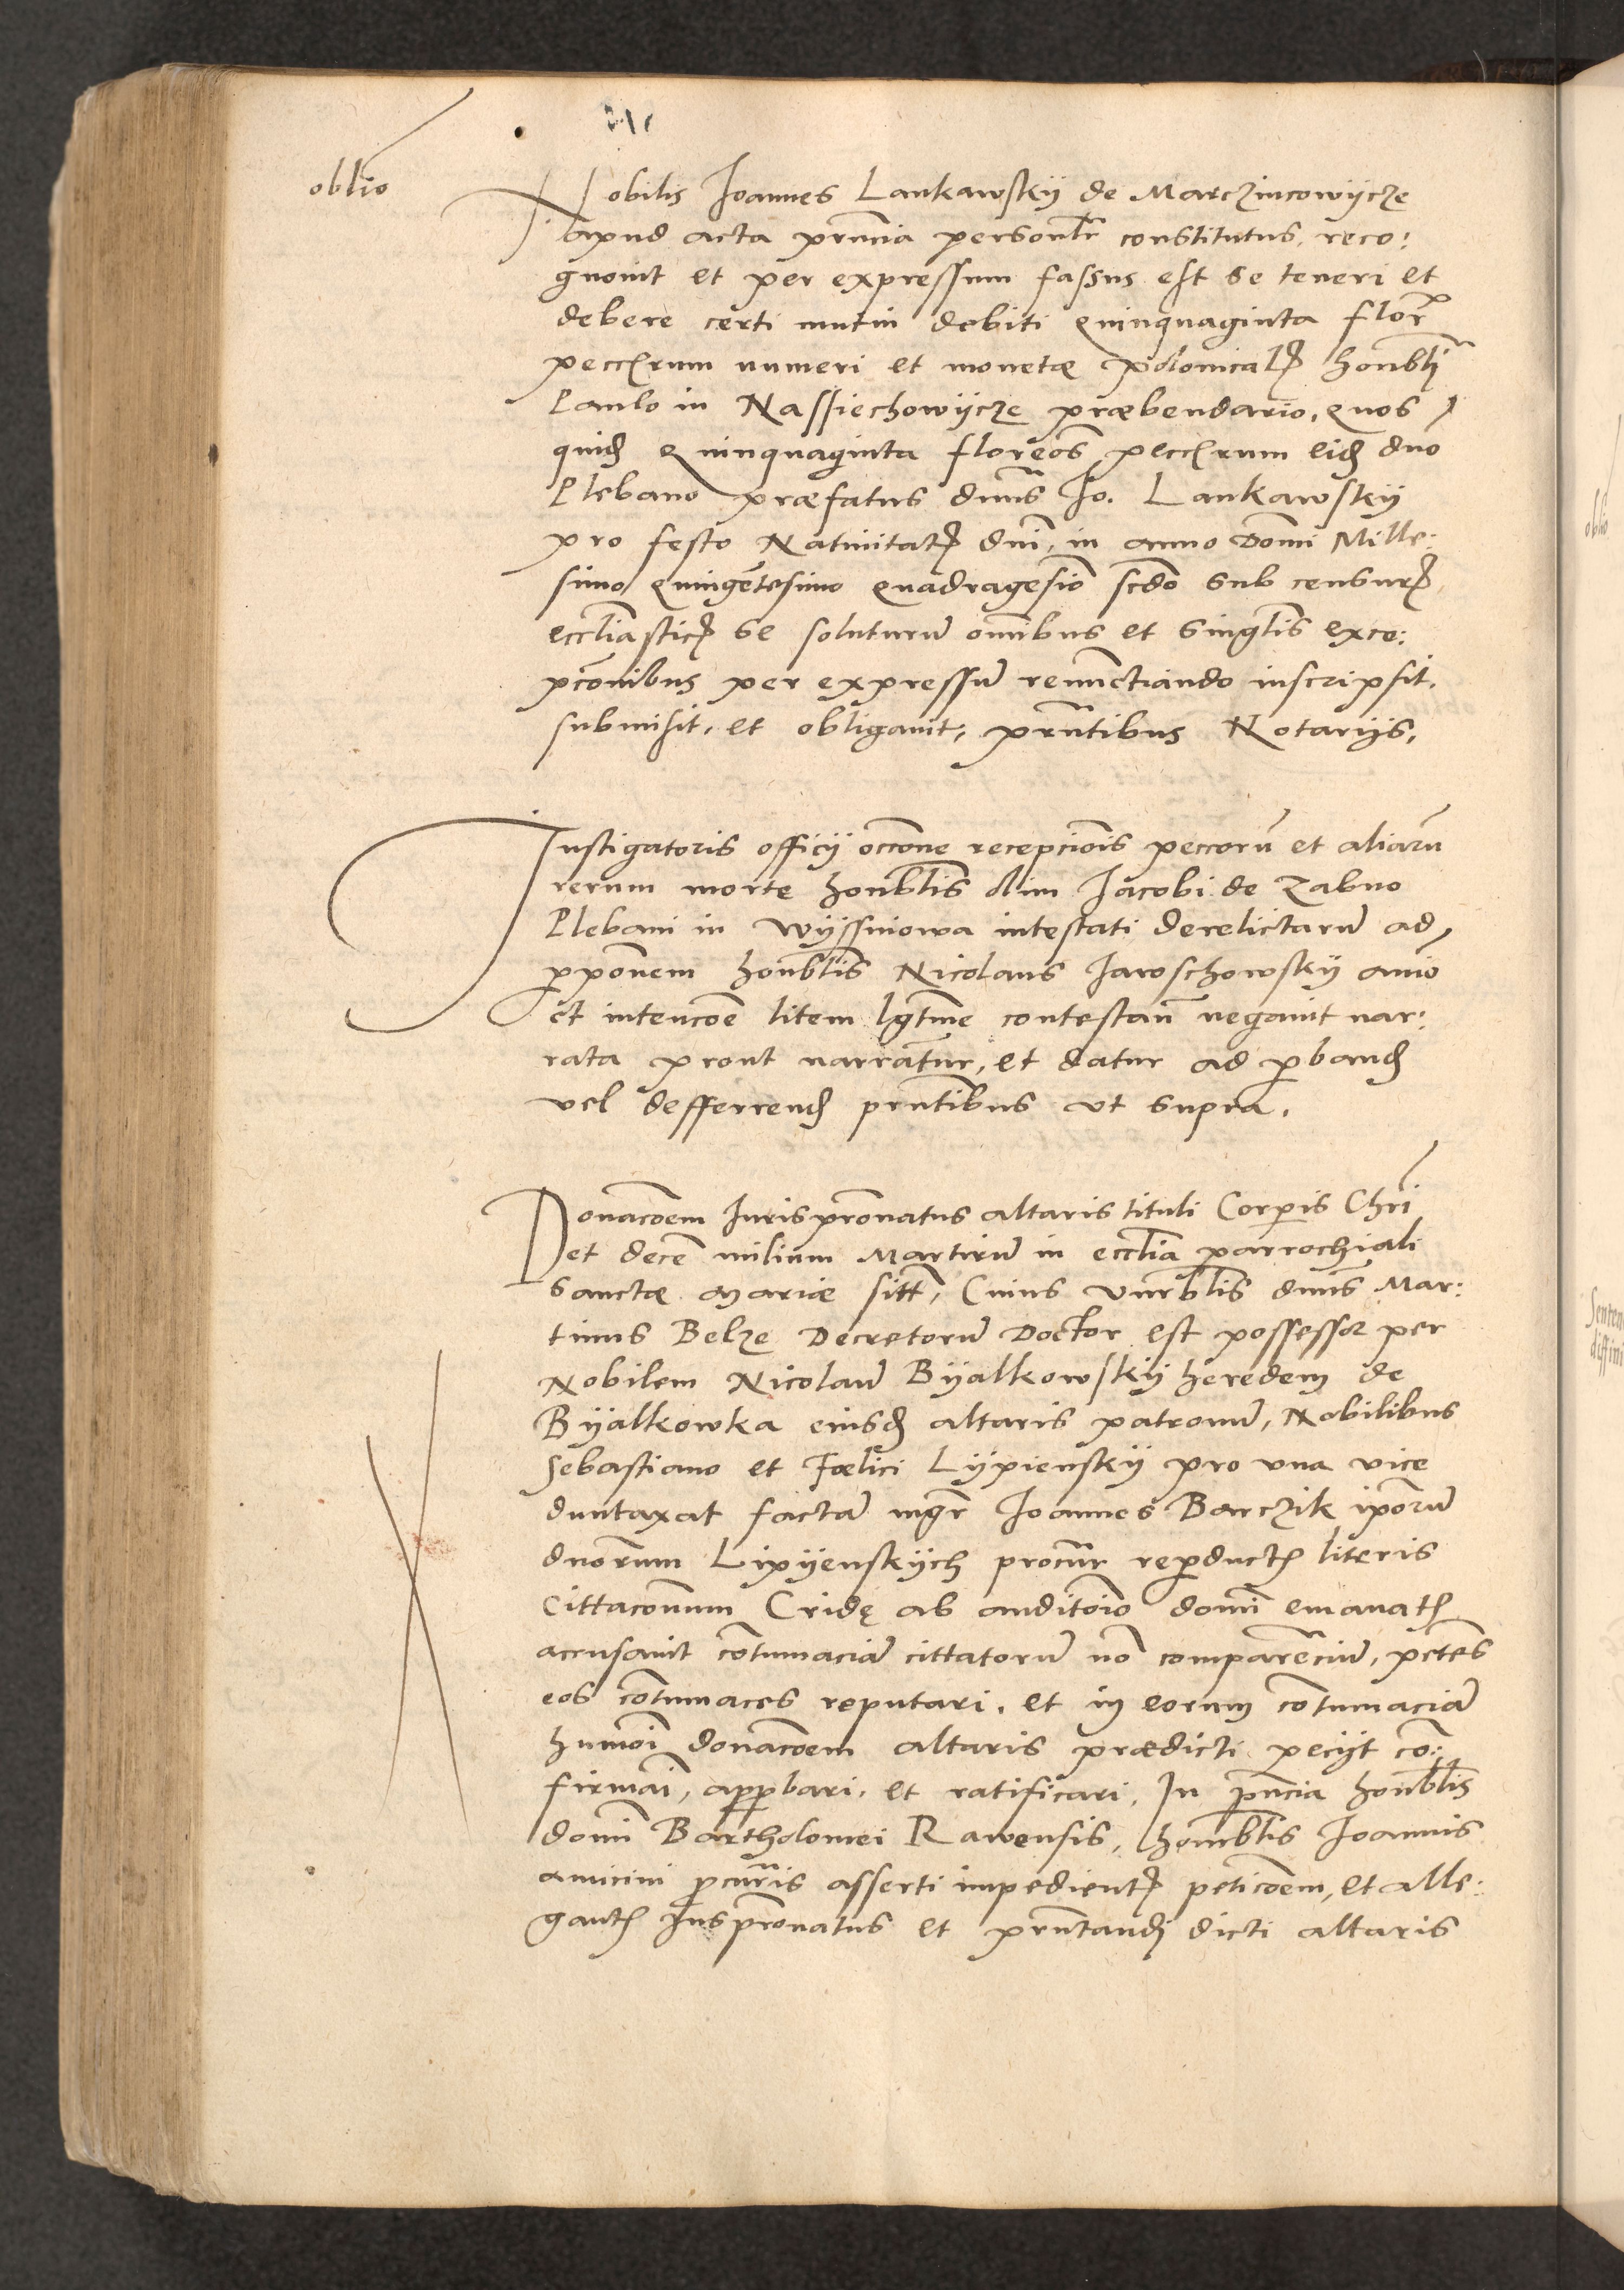 oblio
Nobilis Joannes Lankawskÿ de Marczincowÿcze
apud acta prńcia personlr constitutus, reco:
gnouit et per expressum fassus est se teneri et
debere certi mutui debiti quinquaginta flor
pecc(rum numeri et monetæ polonical honbli
Paulo in Nassiechowÿcze præbendario, quos
quid quinquaginta floreos pecc(rum eid dno
Plebano præfatus dnus Jo. Lankawskÿ
pro festo Natiuitat dni, in anno Domi Mille:
simo quingētesimo quadragesio scdo sub censur
eccliastic se soluturū omibus et singlis exce:
pcōnibus per expressū renunctiando inscripsit,
submisit, et obligauit, prntibus Notarijs.
Instigatoris officij occōne recepcionis peccorū et aliarū
rerum morte honblis olim Jacobi de Zabno
Plebani in Wÿssniowa intestati derelictarū ad
pponem honblis Nicolaus Jaroschowskÿ aniō
et intencōe litem lgtme contestan negauit nar:
rata prout narrātur, et datur ad pband
vel defferrend prntibus vt supra.
Donacōem Jurispronatus altaris tituli Corpis Chri
et decē milium Martirū in ecclia parrochiali
Sanctæ Mariæ sitt, Cuius vnrblis dnus Mar:
tinus Belze Decretorū Doctor est possessor per
Nobilem Nicolaū Bÿalkowskÿ heredem de
Bÿalkowka eiusd altaris patronū, Nobilibus
Sebastiano et Fœlici Lÿpienskÿ pro vna vice
duntaxat factā mgr Joannes Barczik ipōrū
dnorum Lipÿenskÿch procur repduct literis
Cittaconum Cridę ab auditoīo domi emanat
accusauit cōtumaciā cittatorū nō comparenciū, petēs
eos cōtumaces reputari, et in eorum cōtumaciā
humoi donacōem altaris prædicti peciÿt cō:
firmāi, appbari, et ratificari, In pnciā honblis
domi Bartholomei Rawensis, honorblis Joannis
amicini pcuris asserti impedient peticōem, et alle:
gant Juspronatus et prntandi dicti altaris
oblio